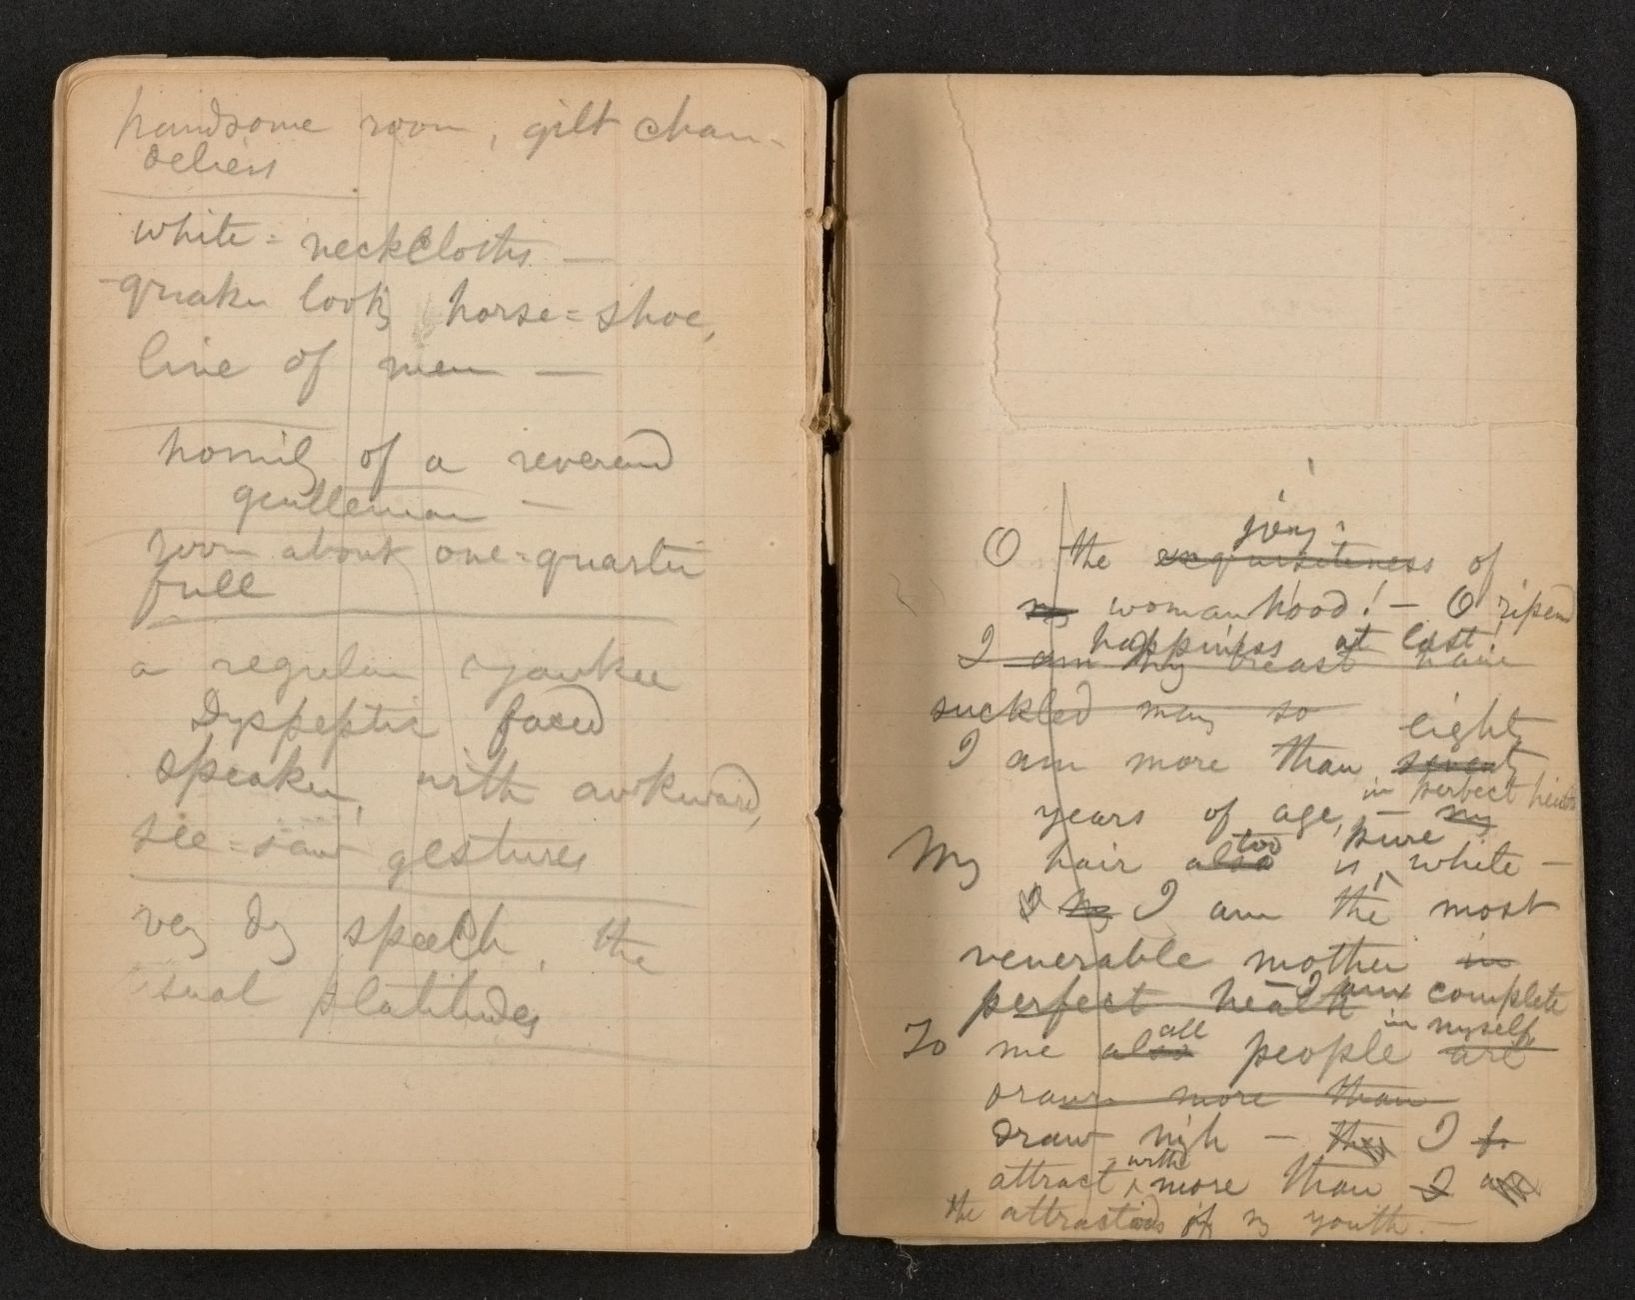 handsome room, gilt chan-
deliers
white=neckcloths —
-quaker look, horse=shoe,
line of men —
homily of a reverend
gentleman —
room about one=quarter
full
a regular yankee
Dyspeptic faced
speaker, with awkward,
see=saw gestures
very dry speech, the
usual platitudes
joy
O the exquisiteness of
my womanhood! — O ripened
happiness at last!
I am my breast have
suckled many so
eighty
I am more than seventy
in perfect health
years of age, — my
too pure
My hair also is ^ white —
I my I am the most
venerable mother in
— I am complete
perfect health
in myself
all
To me also people are
drawn more than
draw nigh — they I
with
attract ^ more than I am
the attractions of my youth. —